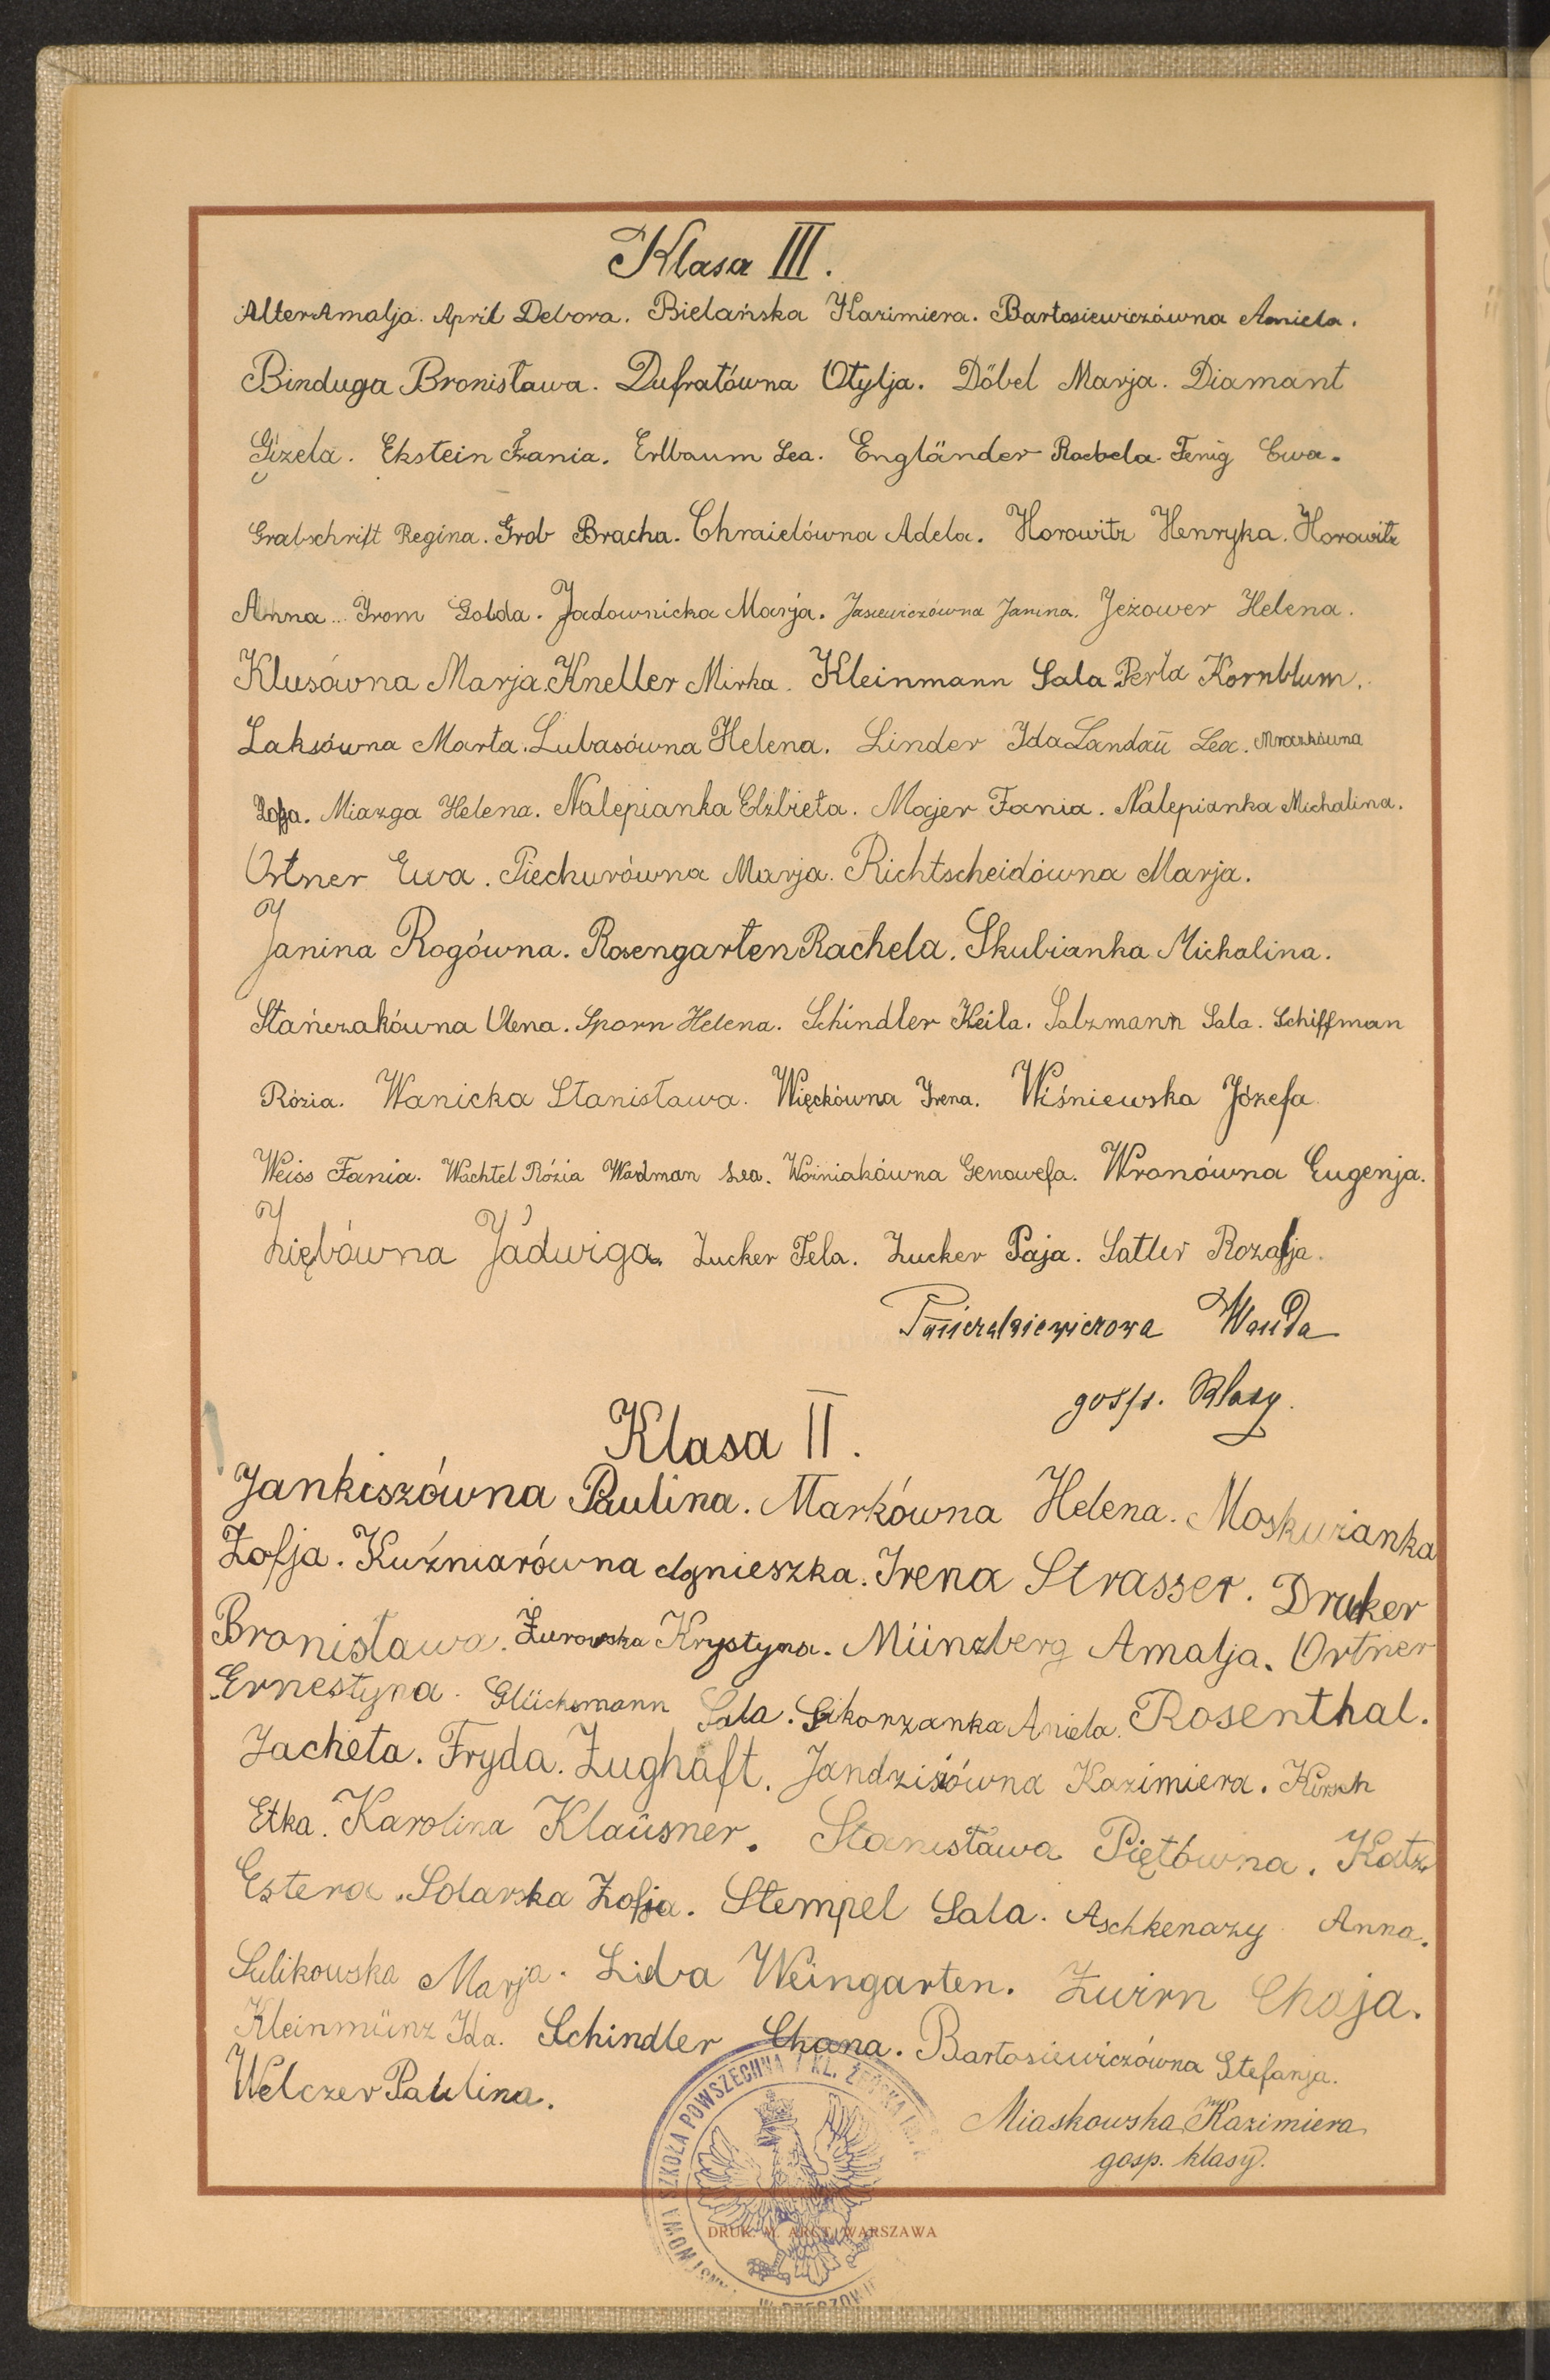 Klasa III.
Alter Amalja. April Debora. Bielańska Kazimiera. Bartosiewiczówna Aniela.
Binduga Bronisława. Dufratówna Otylja. Döbel Marja. Diamant
Gizela. Ekstein Frania. Erlbaum Lea. Engländer Rachela. Fenig Ewa.
Grabschrift Regina. Grob Bracha. Chmielówna Adela. Horowitz Henryka. Horowitz
Anna. Irom Golda. Jadownicka Marja. Jasiewiczówna Janina. Jeżower Helena.
Klusówna Marja. Kneller Mirka. Kleinmann Sala Perla Kornblum.
Laksówna Marta. Lubasówna Helena. Linder Ida Landau Lea. Mroczkówna
Zofja. Miazga Helena. Nalepianka Elżbieta. Majer Fania. Nalepianka Michalina.
Ortner Ewa. Piechurówna Marja. Richtscheidówna Marja.
Janina Rogówna. Rosengarten Rachela. Skubianka Michalina.
Stańczakówna Olena. Sporn Helena. Schindler Keila. Salzmann Sala. Schiffman
Rózia. Wanicka Stanisława. Więckówna Irena. Wiśniewska Józefa.
Weiss Fania. Wachtel Rózia Wadman Lea. Woźniakówna Genowefa. Wronówna Eugenja.
Ziębówna Jadwiga. Zucker Fela. Zucker Paja. Sattler Rozalja.
Wanda
gosp. klasy.
Klasa II.
Jankiszówna Paulina. Markówna Helena. Moskurzanka
Zofja. Kuźniarówna Agnieszka. Irena Strasser. Druker
Bronisława. Żurowska Krystyna. Münzberg Amalja. Ortner
Ernestyna. Glücksmann Sala. Sikorzanka Aniela. Rosenthal.
Jacheta. Fryda. Zughaft. Jandzisiówna Kazimiera. Kirsch
Etka. Karolina Klausner. Stanisława Piętówna. Katz
Estera. Solarska Zofja. Stempel Sala. Aschkenazy Anna.
Sulikowska Marja. Liba Weingarten. Zwirn Chaja.
Kleinmünz Ida. Schindler Chana. Bartosiewiczówna Stefanja.
Welczer Paulina.
Miaskowska Kazimiera
gosp. klasy.
SZKOŁA POWSZECHNA 7 KL. ŻEŃSKA
W RZESZOWIE
DRUK. M. ARCT, WARSZAWA